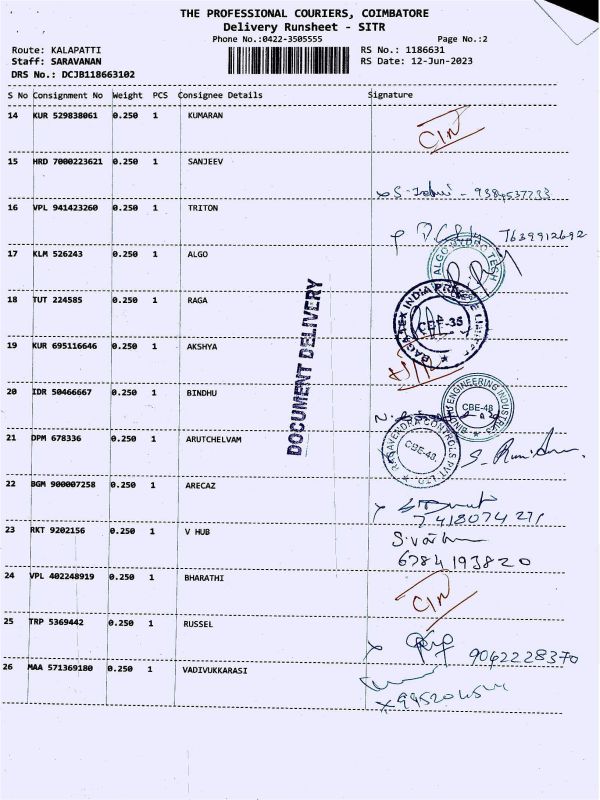 THE PROFESSIONAL COURIERS, COIMBATORE
Delivery Runsheet - SITR
Phone No.:0422-3505555 Page No.:2
Route: KALAPATTI RS No.: 1186631
Staff: SARAVANAN RS Date: 12-Jun-2023
DRS No.: DCJB118663102
S No Consignment No Weight PCS Consignee Details Signature
14 KUR 529838061 0.250 1 KUMARAN
15 HRD 7000223621 0.250 1 SANJEEV
9384537733
16 VPL 941423260 0.250 1 TRITON
7639912692
17 KLM 526243 0.250 1 ALGO
ALGO HYDRO TECH
18 TUT 224585 0.250 1 RAGA
INDIA PRIVATE LIMITED
CBE-35
19 KUR 695116646 0.250 1 AKSHYA
DOCUMENT DELIVERY
20 IDR 50466667 0.250 1 BINDHU
BINDHU ENGINEERING INDUSTRIES
CBE-48
21 DPM 678336 0.250 1 ARUTCHELVAM
RAGAVENDRA CONTROLS PVT LTD
CBE-48
22 BGM 900007258 0.250 1 ARECAZ
23 RKT 9202156 0.250 1 V HUB
6784193820
24 VPL 402248919 0.250 1 BHARATHI
25 TRP 5369442 0.250 1 RUSSEL
9062228370
26 MAA 571369180 0.250 1 VADIVUKKARASI